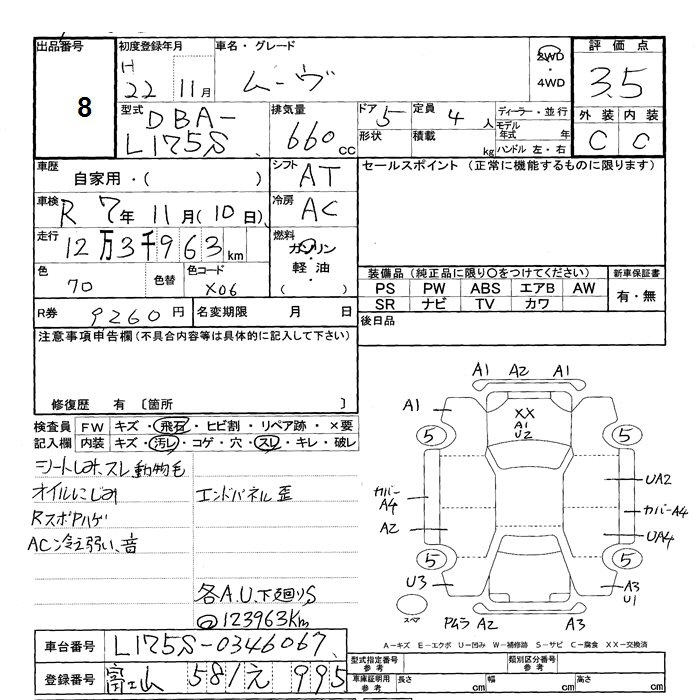 出品番号
8
初度登録年月
H
22 11月
車名・グレード
ムーヴ
2WD
・
4WD
評価点
3.5
型式
DBA-
L175S
排気量
660cc
ドア 5
定員 4人
形状
積載 kg
ディーラー・並行
モデル年式 年
ハンドル 左・右
外装 内装
C C
車歴
自家用・( )
シフト AT
セールスポイント(正常に機能するものに限ります)
車検
R 7年 11月(10日)
冷房 AC
走行
12万3千963km
燃料
ガソリン
・
軽油
( )
色
70
色替
色コード
X06
装備品(純正品に限り○をつけてください)
新車保証書
PS PW ABS エアB AW
SR ナビ TV カワ
有・無
R券 9260円
名変期限 月 日
後日品
注意事項申告欄(不具合内容等は具体的に記入して下さい)
修復歴 有 〔箇所 〕
検査員 FW キズ・飛石・ヒビ割・リペア跡・×要
記入欄 内装 キズ・汚レ・コゲ・穴・スレ・キレ・破レ
シートしみ、スレ 動物毛
オイルにじみ
エンドパネル歪
RスポPハゲ
AC冷え弱い、音
各A.U.下廻りS
123963Km
A1 A2 A1
A1
XX
A1
U2
5 5
カバー
A4
A2
UA2
カバーA4
UA4
5 5
U3
A3
U1
スペア
A2 A3
A-キズ E-エクボ U-凹み W-補修跡 S-サビ C-腐食 XX-交換済
車台番号 L175S-0346067
登録番号 富山 581 え 995
型式指定番号
参考
類別区分番号
参考
車庫証明用
参考
長さ cm
幅 cm
高さ cm